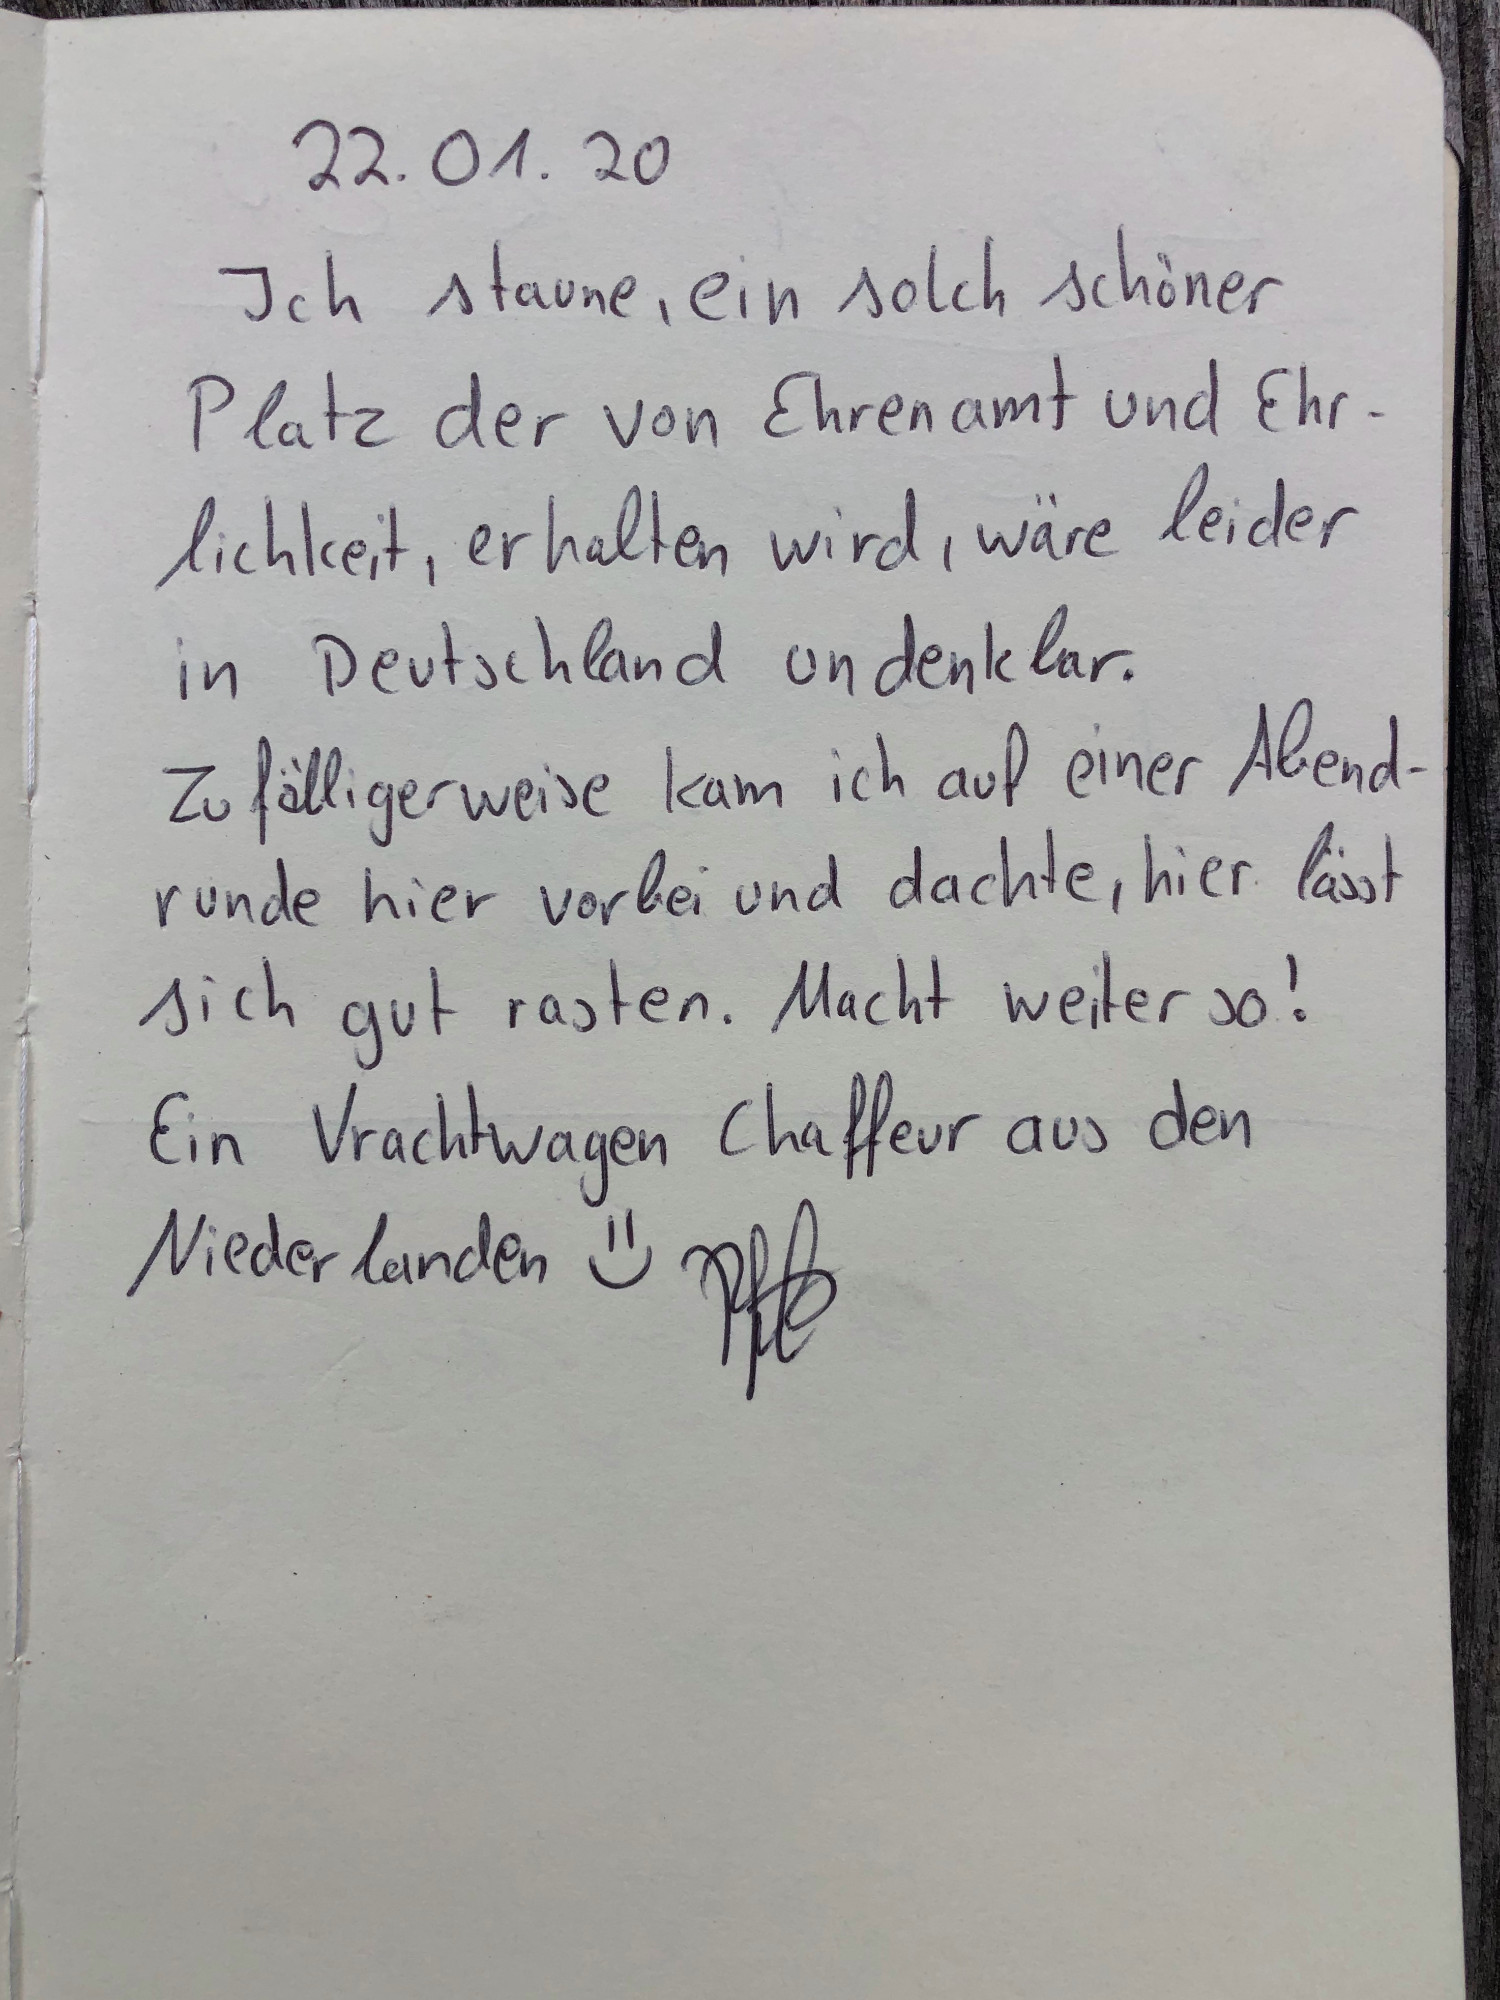 22.01.20
Ich staune, ein solch schöner
Platz der von Ehrenamt und Ehr-
lichkeit, erhalten wird, wäre leider
in Deutschland undenklar.
Zufälligerweise kam ich auf einer Abend-
runde hier vorbei und dachte, hier lässt
sich gut rasten. Macht weiter so!
Ein Vrachtwagen Chaffeur aus den
Niederlanden